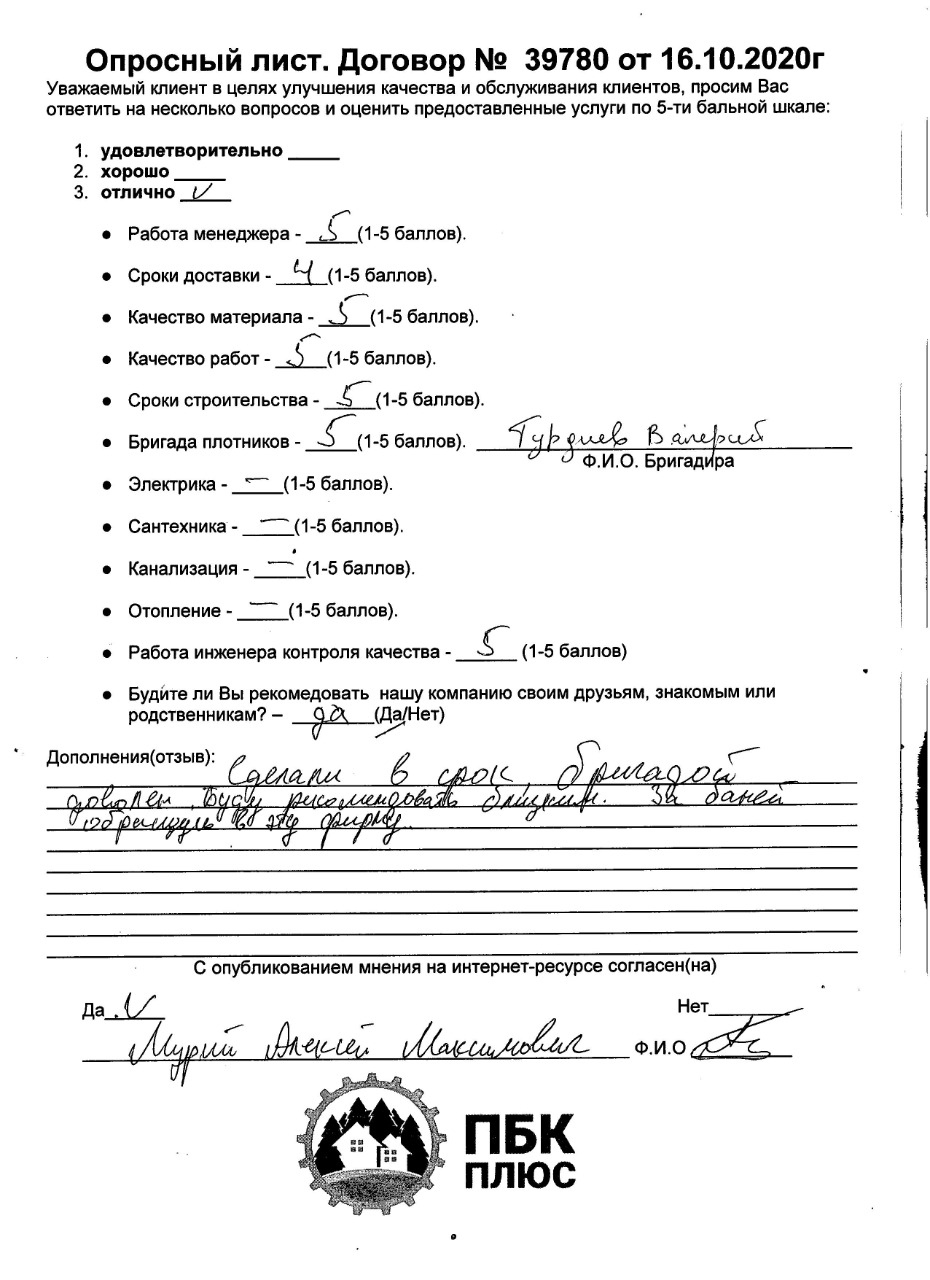 Опросный лист. Договор № 39780 от 16.10.2020г
Уважаемый клиент в целях улучшения качества и обслуживания клиентов, просим Вас
ответить на несколько вопросов и оценить предоставленные услуги по 5-ти бальной шкале:
1. удовлетворительно _____
2. хорошо _____
3. отлично V
● Работа менеджера - 5 (1-5 баллов).
● Сроки доставки - 4 (1-5 баллов).
● Качество материала - 5 (1-5 баллов).
● Качество работ - 5 (1-5 баллов).
● Сроки строительства - 5 (1-5 баллов).
● Бригада плотников - 5 (1-5 баллов). Гурдиев Валерий
Ф.И.О. Бригадира
● Электрика - — (1-5 баллов).
● Сантехника - — (1-5 баллов).
● Канализация - — (1-5 баллов).
● Отопление - — (1-5 баллов).
● Работа инженера контроля качества - 5 (1-5 баллов)
● Будите ли Вы рекомедовать нашу компанию своим друзьям, знакомым или
родственникам? – да (Да/Нет)
Дополнения(отзыв): Сделали в срок, бригадой
доволен. Буду рекомендовать близким. За баней
обращусь в эту фирму.
С опубликованием мнения на интернет-ресурсе согласен(на)
Да V Нет
Мурий Алексей Максимович Ф.И.О
ПБК
ПЛЮС